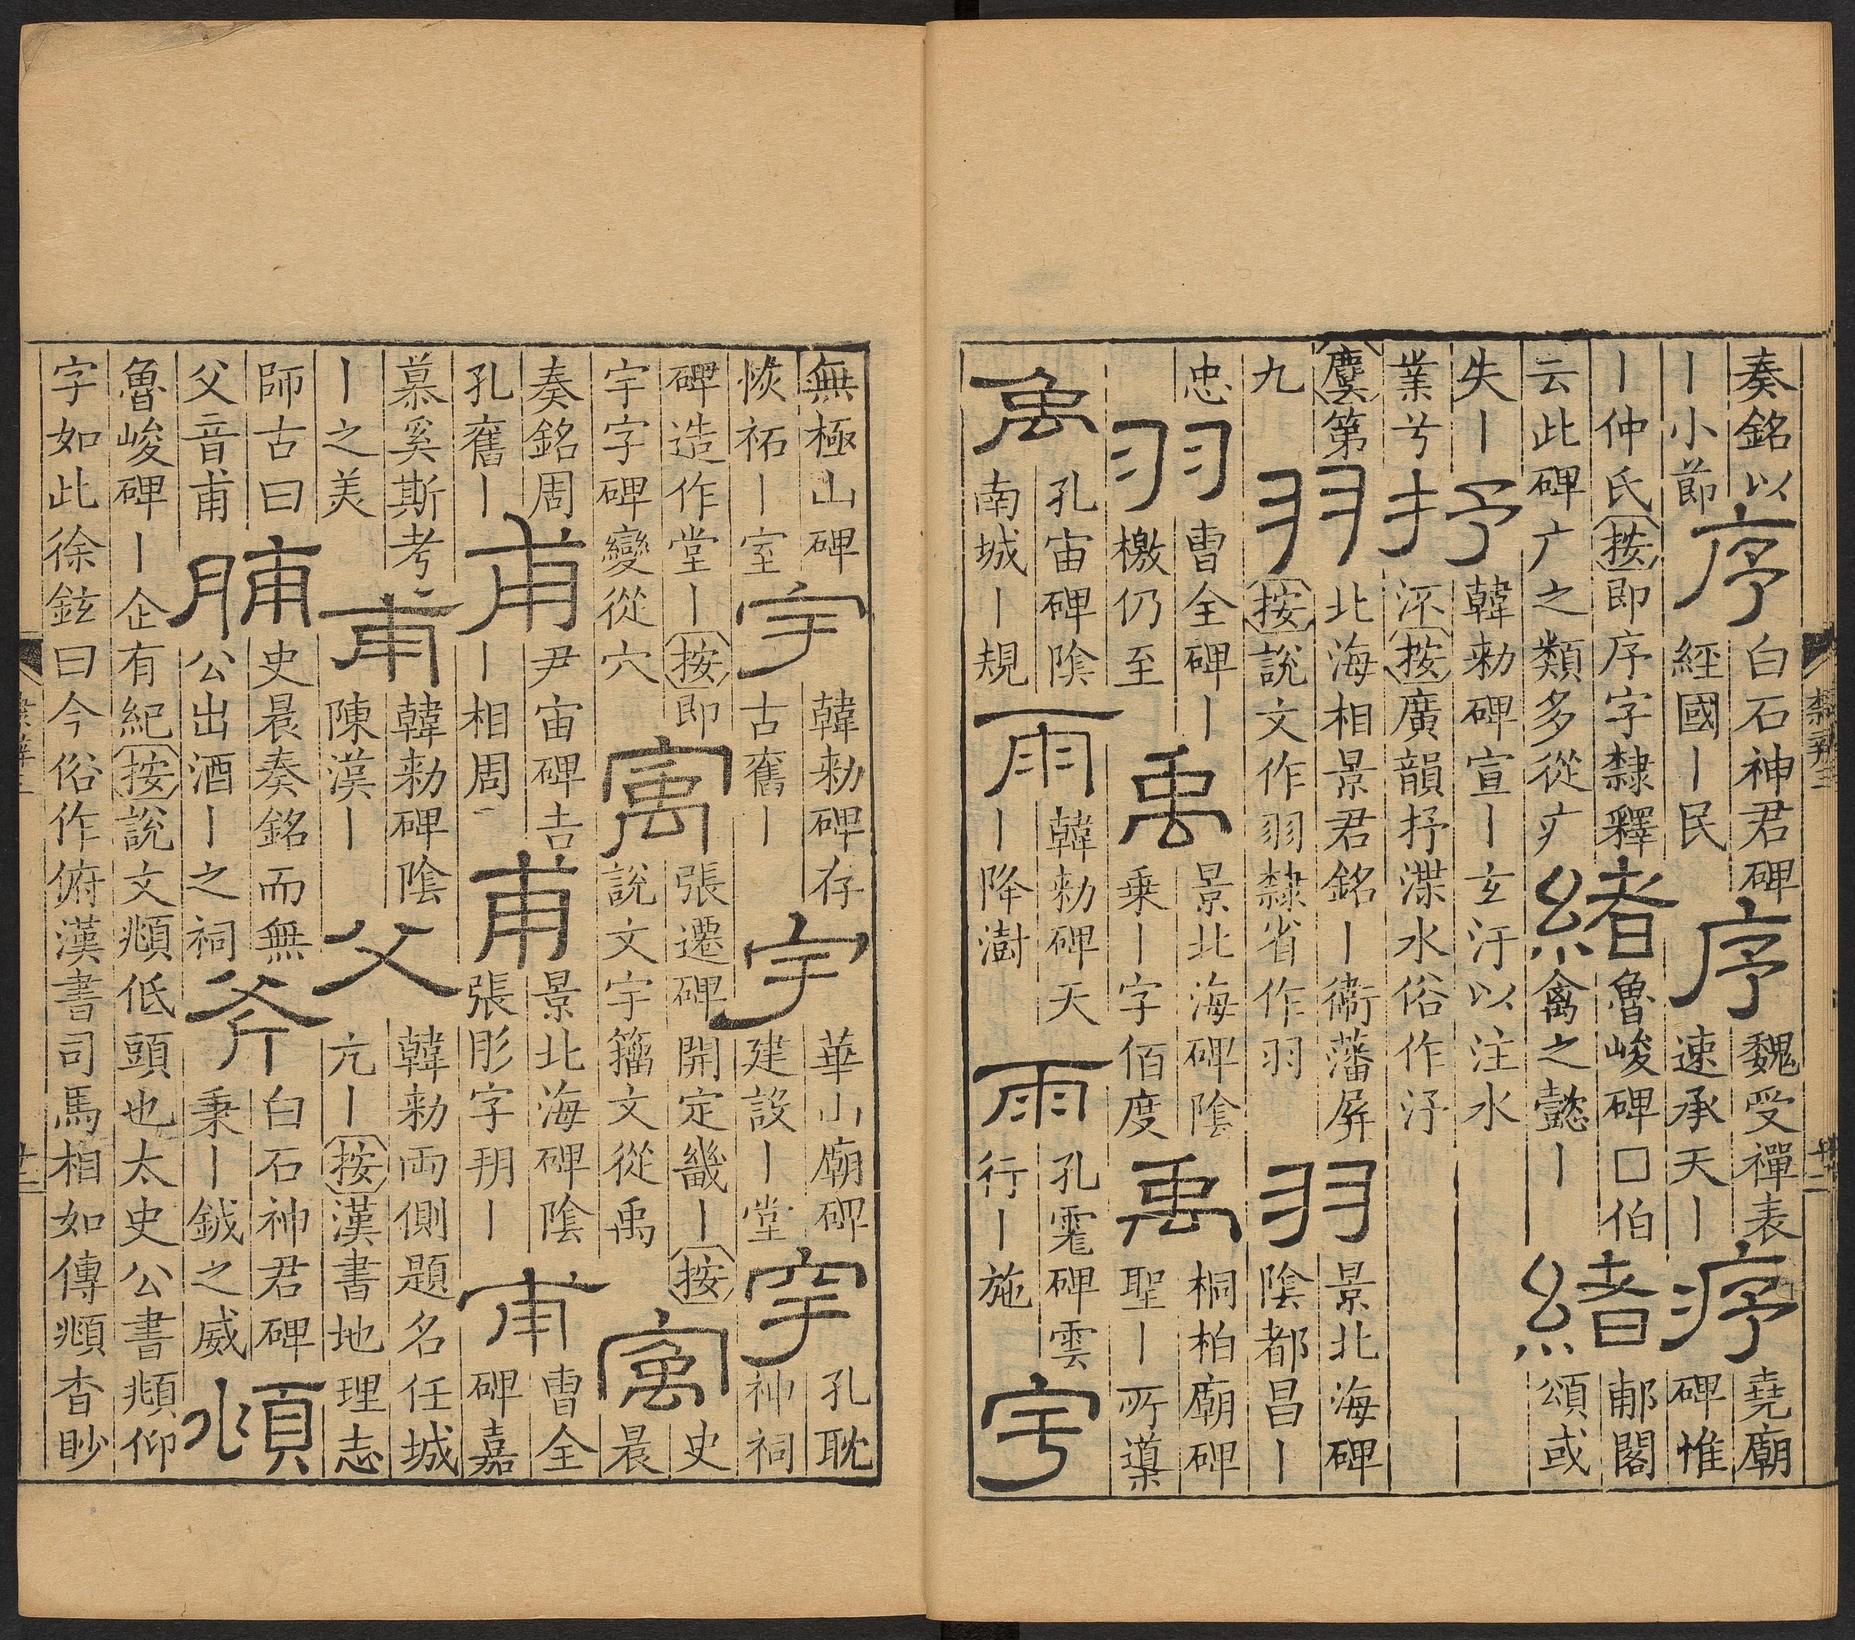 奏銘以丨小節序白石神君碑經國丨民序魏受禪表速承天丨序堯廟碑惟
丨仲氏按即序字隸釋云此碑广之類多從疒緒魯峻碑□伯禽之懿丨緒郙閣頌或
失丨業兮抒韓勑碑宣丨玄汙以注水按廣韻抒渫水俗作汿
麌第九羽北海相景君銘丨衞藩屏按說文作羽隸省作羽羽景北海碑陰都昌丨
忠羽曹全碑丨檄仍至禹景北海碑陰乗丨字佰度禹桐柏廟碑聖丨所導
禹孔宙碑陰南城丨規雨韓勑碑天丨降澍雨孔碑雲行丨施宇
無極山碑恢祏丨室宇韓勑碑存古舊丨宇華山廟碑建設丨堂穻孔耽神祠
碑造作堂丨按即宇字碑變從穴寓張遷碑開定畿丨按說文宇籀文從禹寓史晨
奏銘周孔舊丨甫尹宙碑吉丨相周甫景北海碑陰張彤字朋丨甫曹全碑嘉
慕奚斯考丨之美甫韓勑碑陰陳漢丨父韓勑兩側題名任城亢丨按漢書地理志
師古曰父音甫脯史晨奏銘而無公出酒丨之祠斧白石神君碑秉丨鉞之威頫
魯峻碑丨企有紀按說文頫低頭也太史公書頫仰字如此徐鉉曰今俗作俯漢書司馬相如傳頫杳眇